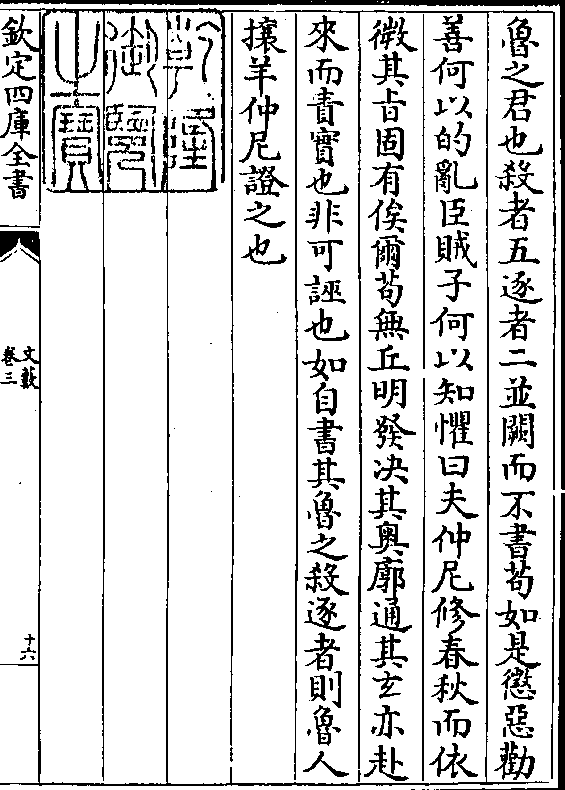 魯之君也殺者五逐者二並闕而不書苟如是懲惡勸
善何以的亂臣賊子何以知懼曰夫仲尼修春秋而依
微其㫖固有俟爾苟無丘明發决其奧廓通其玄亦赴
來而責實也非可誣也如自書其魯之殺逐者則魯人
攘羊仲尼證之也
乾隆
御覽
之寶
欽定四庫全書
文藪
卷三
十六